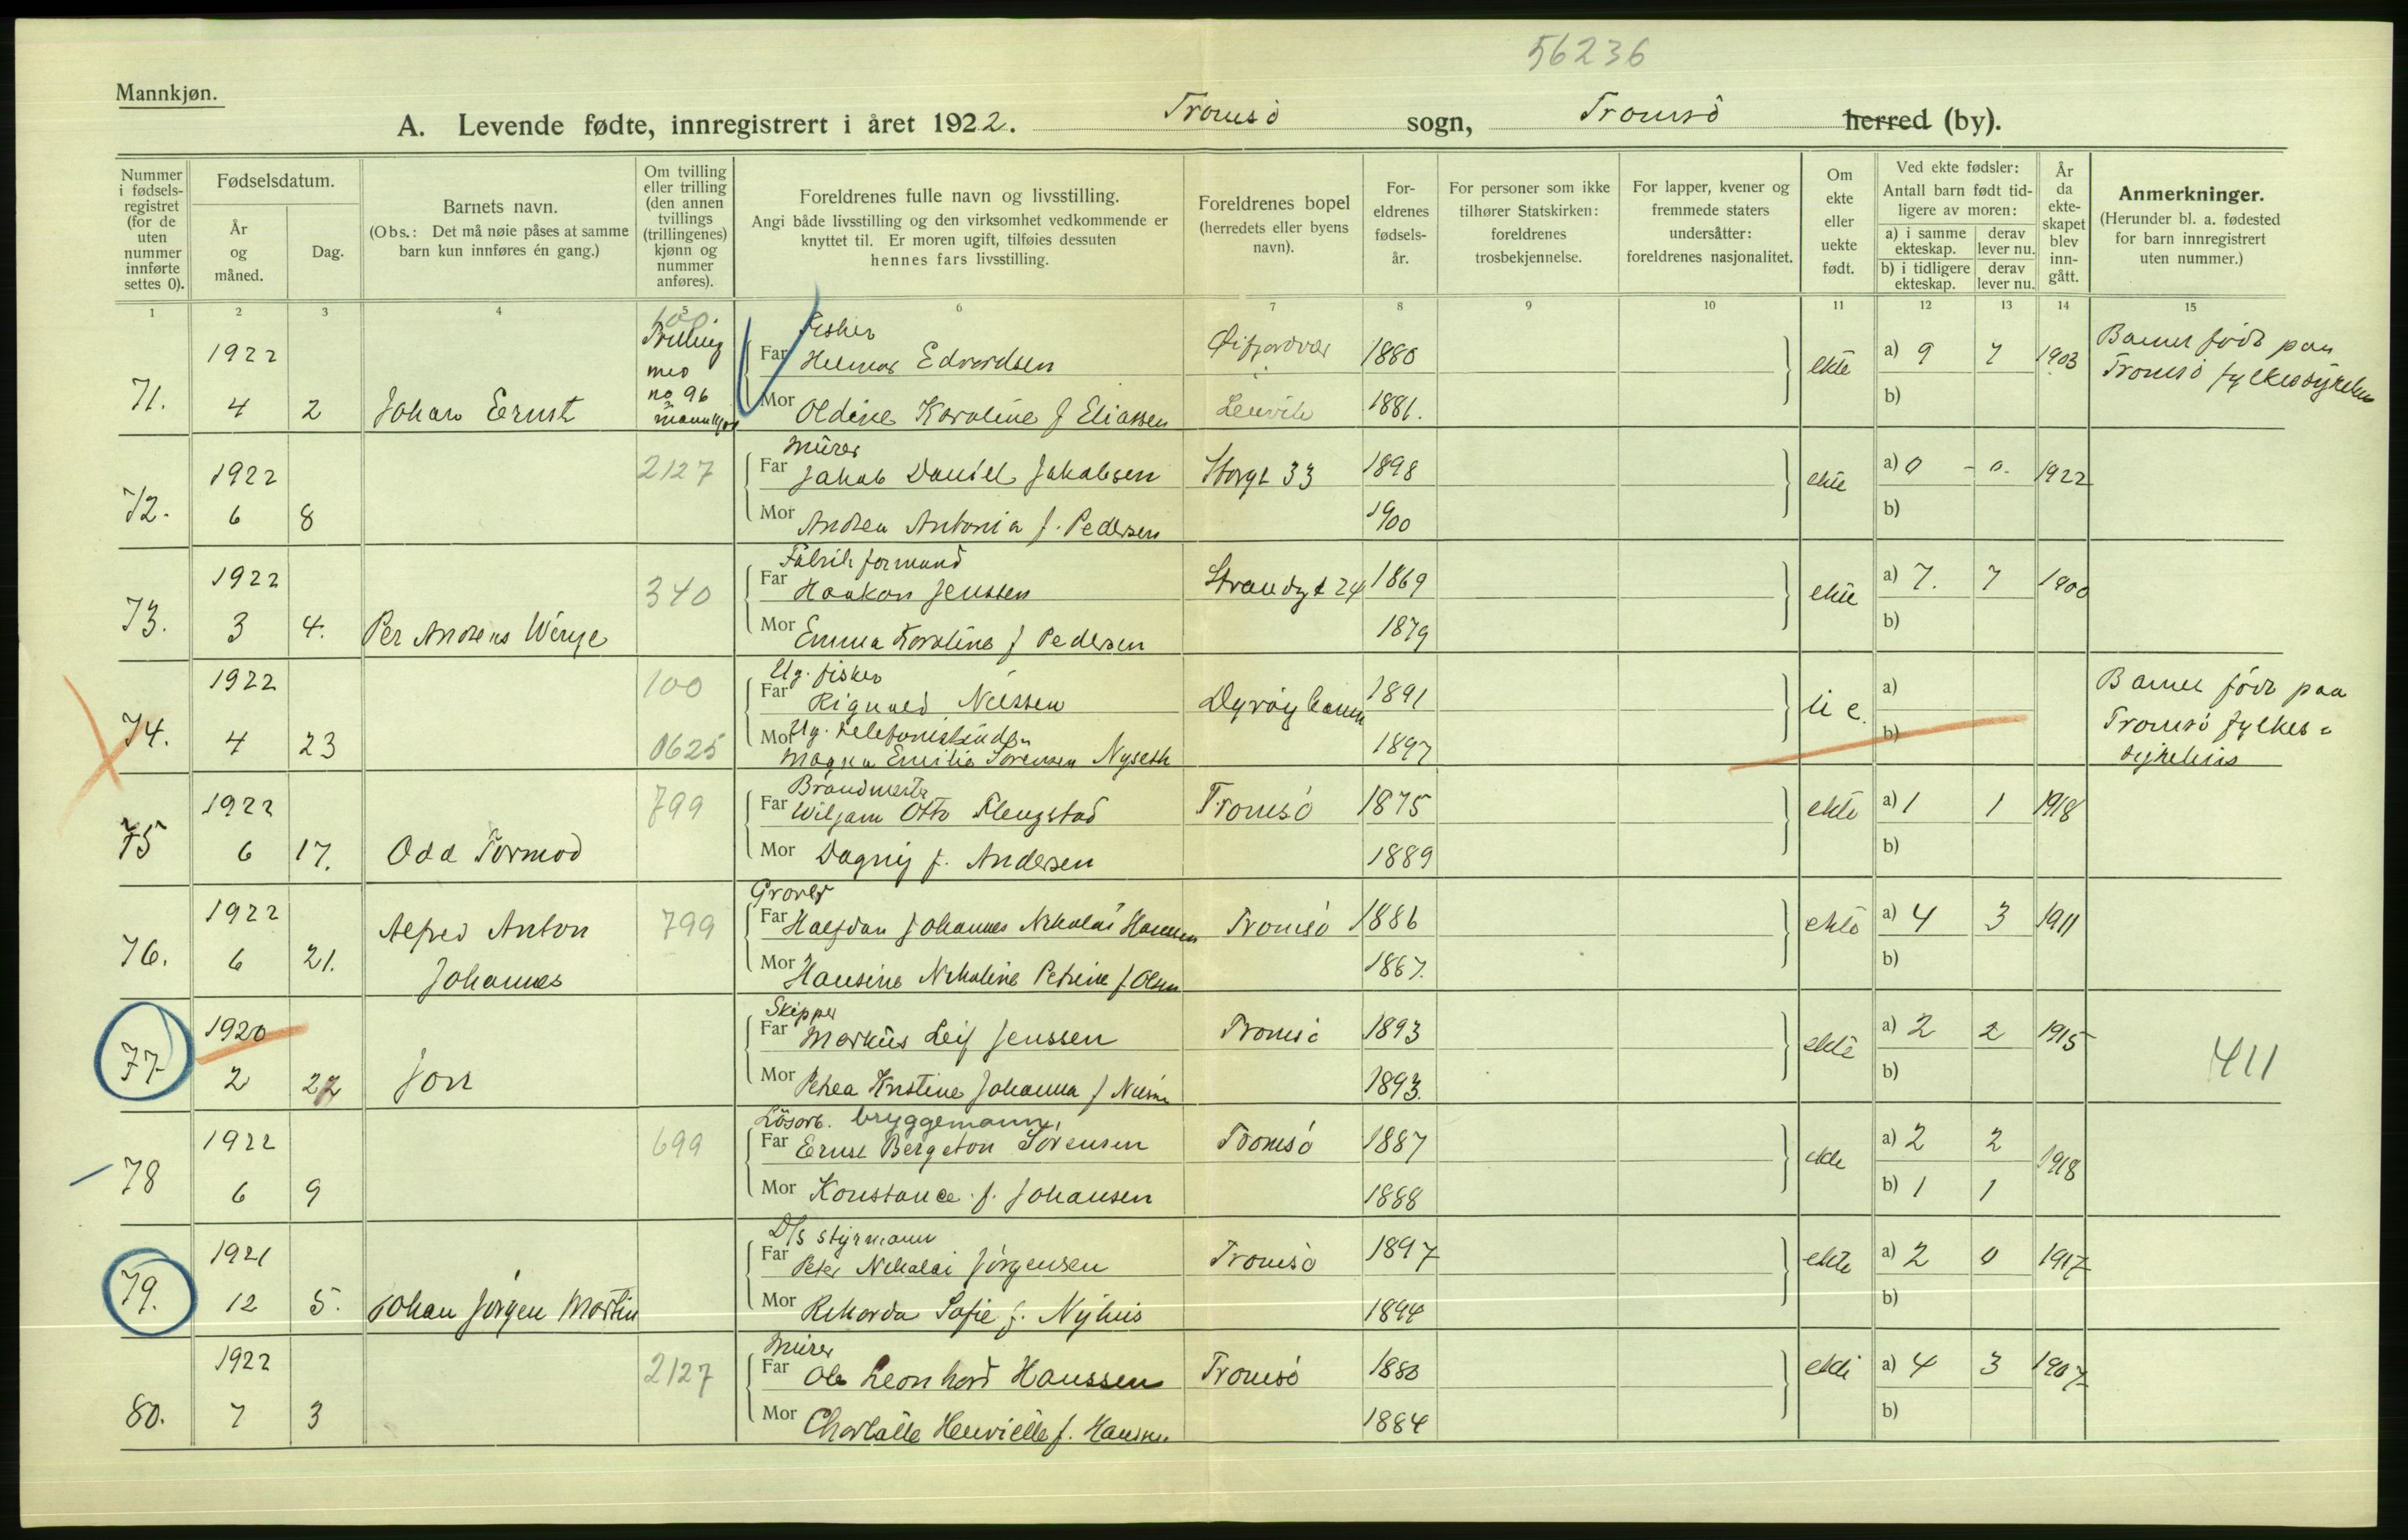 56236
Mannkjøn.
A. Levende fødte, innregistrert i året 1922. Tromsö sogn, Tromsö herred (by).
Nummer i fødsels-registret (for de uten nummer innførte settes 0).
Fødselsdatum.
År og måned.
Dag.
Barnets navn.
(Obs.: Det må nøie påses at samme barn kun innføres én gang.)
Om tvilling eller trilling (den annen tvillings (trillingenes) kjønn og nummer anføres).
Foreldrenes fulle navn og livsstilling.
Angi både livsstilling og den virksomhet vedkommende er knyttet til. Er moren ugift, tilføies dessuten hennes fars livsstilling.
Foreldrenes bopel (herredets eller byens navn).
For-eldrenes fødsels-år.
For personer som ikke tilhører Statskirken: foreldrenes trosbekjennelse.
For lapper, kvener og fremmede staters undersåtter: foreldrenes nasjonalitet.
Om ekte eller uekte født.
Ved ekte fødsler:
Antall barn født tid-ligere av moren:
a) i samme ekteskap. derav lever nu.
b) i tidligere ekteskap. derav lever nu.
År da ekte-skapet blev inn-gått.
Anmerkninger.
(Herunder bl. a. fødested for barn innregistrert uten nummer.)
1 2 3 4 5 6 7 8 9 10 11 12 13 14 15
100
71. 1922 4 2 Johan Ernst
med no 96
Fisker
Far Helmer Edvardsen 1880 ekte a) 9 7 1903
Mor Oldine Karoline f Eliassen Lenvik 1881. b)
Barnet födt paa Tromsö fylkessykehus
72. 1922 6 8 2127
Murer
Far Jakob Daniel Jakobsen Storgt 33 1898 ekte a) 0 - 0. 1922
Mor Andrea Antonia f. Pedersen 1900 b)
73. 1922 3 4. Per Andreas Wenge 340
Fabrikformand
Far Haakon Jenssen Strandgt 24 1869 ekte a) 7. 7 1900
Mor Emma Karoline f Pedersen 1879 b)
74. 1922 4 23 100 0625
Ug. fisker
Far Rignald Nilssen Dyröyhamn 1891 u e. a)
Mor Ug. telefonistinde
Magna Emilie Sörensen Nyseth 1897 b)
Barnet födt paa Tromsö fylkes=sykehus
75 1922 6 17. Odd Tormod 799
Brandmester
Far Wiljam Otto Flengstad Tromsö 1875 ekte a) 1 1 1918
Mor Dagny f. Andersen 1889 b)
76. 1922 6 21. Alfred Anton Johannes 799
Graver
Far Halfdan Johannes Nikolai Hansen Tromsö 1886 ekte a) 4 3 1911
Mor Hansine Nikoline Petrine f Olsen 1887. b)
77 1920 2 22 Jon
Skipper
Far Markus Leif Jenssen Tromsö 1893 ekte a) 2 2 1915
Mor Petrea Kristine Johanna f Nilsen 1893. b)
411
78 1922 6 9 699
Lösarb. bryggemann,
Far Ernst Bergeton Sörensen Tromsö 1887 ekte a) 2 2 1918
Mor Konstance f. Johansen 1888 b) 1 1
79. 1921 12 5. Johan Jörgen Martin
D/s styrmann
Far Peter Nikolai Jörgensen Tromsö 1897 ekte a) 2 0 1917
Mor Rikarda Sofie f. Nyhus 1894 b)
80. 1922 7 3 2127
Murer
Far Ole Leonhard Hanssen Tromsö 1880 ekte a) 4 3 1907
Mor Charlotte Henriette f. Hansen 1884 b)